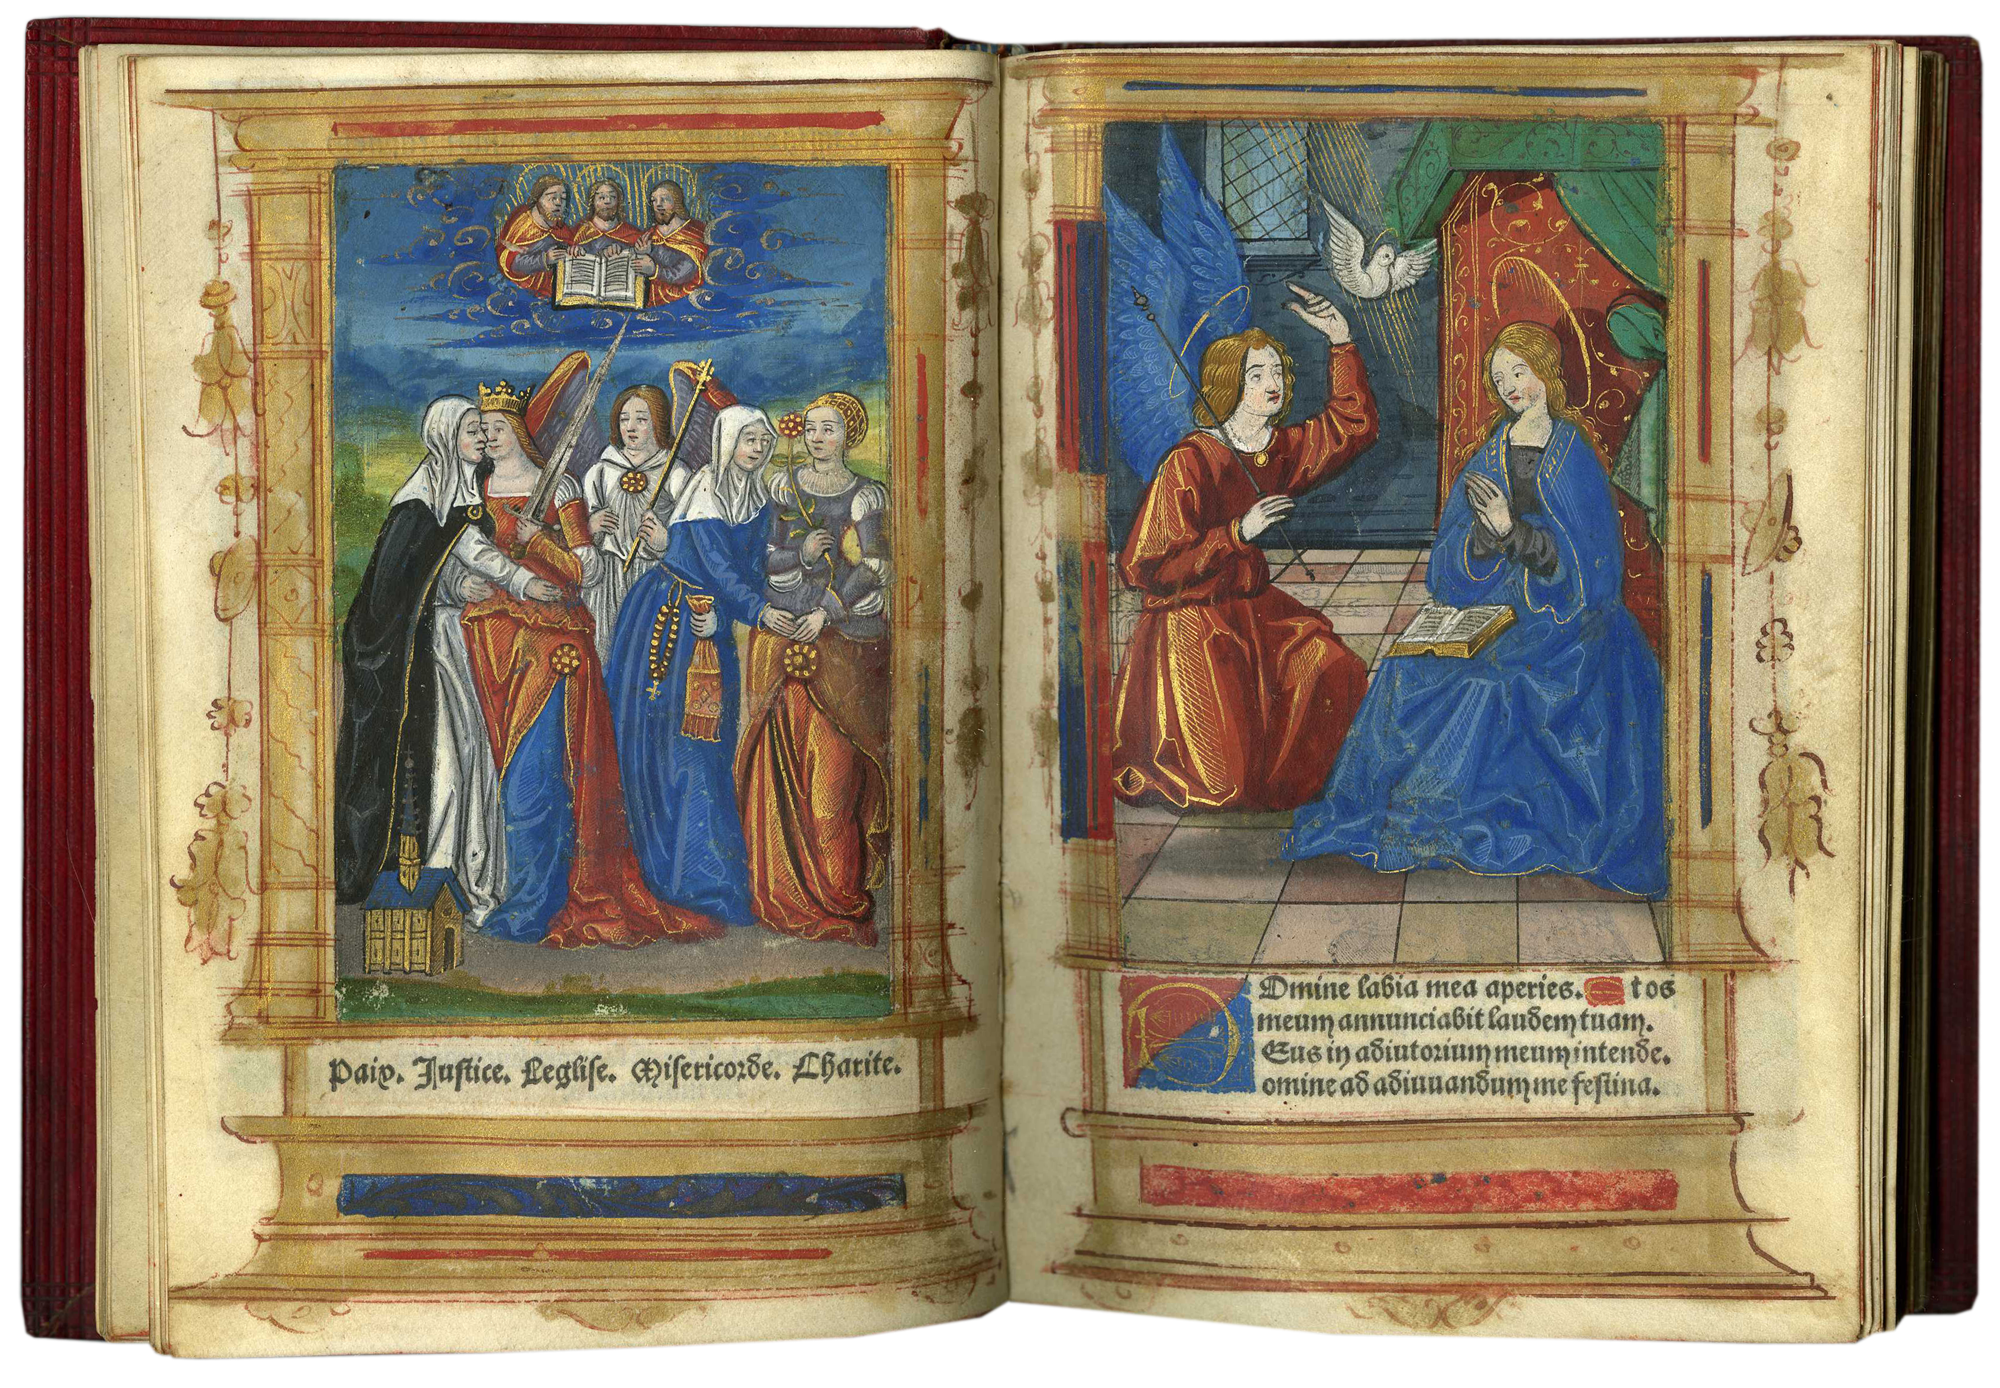 Paix. Justice. Leglise. Misericorde. Charite.
Domine labia mea aperies. Et os
meum annunciabit laudem tuam.
Deus in adiutorium meum intende.
omine ad adiuuandum me festina.